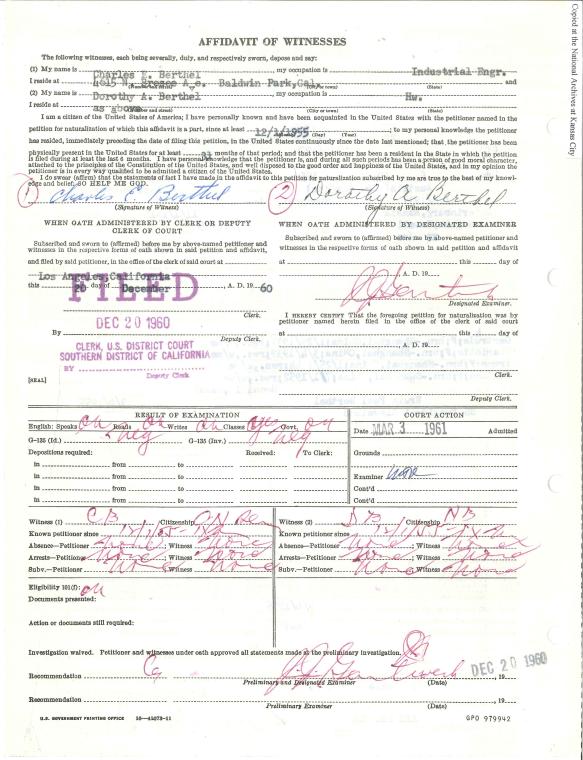 Copied at the National Archives at Kansas City
AFFIDAVIT OF WITNESSES
The following witnesses, each being severally, duly, and respectively sworn, depose and say:
(1) My name is Charles E. Berthel, my occupation is Industrial Engr.
I reside at 4615 N. Baldwin Park, Cal. and
(Number and street) (City or town) (State)
(2) My name is Dorothy A. Berthel, my occupation is Hw.
I reside at as above
(Number and street) (City or town) (State)
I am a citizen of the United States of America; I have personally known and have been acquainted in the United States with the petitioner named in the
petition for naturalization of which this affidavit is a part, since at least 12/1/1955; to my personal knowledge the petitioner
(Day) (Year)
has resided, immediately preceding the date of filing this petition, in the United States continuously since the date last mentioned; that, the petitioner has been
physically present in the United States for at least months of that period; and that the petitioner has been a resident of the State in which the petition
is filed during at least the last 6 months. I have personal knowledge that the petitioner is, and during all such periods has been a person of good moral character,
attached to the principles of the Constitution of the United States, and well disposed to the good order and happiness of the United States, and in my opinion the
petitioner is in every way qualified to be admitted a citizen of the United States.
I do swear (affirm) that the statements of fact I have made in the affidavit to this petition for naturalization subscribed by me are true to the best of my knowl-
edge and belief, SO HELP ME GOD.
1 Charles E Berthel 2 Dorothy A Berthel
(Signature of Witness) (Signature of Witness)
WHEN OATH ADMINISTERED BY CLERK OR DEPUTY
CLERK OF COURT
Subscribed and sworn to (affirmed) before me by above-named petitioner and
witnesses in the respective forms of oath shown in said petition and affidavit
and filed by said petitioner, in the office of the clerk of said court at
Los Angeles, California
this 20 day of December, A. D. 1960
FILED
Clerk.
DEC 20 1960
By
Deputy Clerk.
CLERK, U.S. DISTRICT COURT
SOUTHERN DISTRICT OF CALIFORNIA
BY
Deputy Clerk
[SEAL]
WHEN OATH ADMINISTERED BY DESIGNATED EXAMINER
Subscribed and sworn to (affirmed) before me by above-named petitioner and
witnesses in the respective forms of oath shown in said petition and affidavit
at this day of
, A. D. 19
Designated Examiner.
I HEREBY CERTIFY That the foregoing petition for naturalization was by
petitioner named herein filed in the office of the clerk of said court
at this day of
, A. D. 19
Clerk.
Deputy Clerk.
RESULT OF EXAMINATION
English: Speaks ok Reads ok Writes ok Classes yes Govt. ok
G-135 (Id.) neg G-135 (Inv.) neg
Depositions required: Received: To Clerk:
in from to
in from to
in from to
in from to
COURT ACTION
Date MAR 3 1961 Admitted
Grounds
Examiner
Cont'd
Cont'd
Witness (1) CB Citizenship
Known petitioner since 12/1/55
Absence—Petitioner none; Witness none
Arrests—Petitioner none; Witness none
Subv.—Petitioner none; Witness none
Witness (2) DB Citizenship NB
Known petitioner since 12/1/55
Absence—Petitioner none; Witness none
Arrests—Petitioner none; Witness none
Subv.—Petitioner none; Witness none
Eligibility 101(f): ok
Documents presented:
Action or documents still required:
Investigation waived. Petitioner and witnesses under oath approved all statements made at the preliminary investigation.
Recommendation DEC 20 1960, 19
Preliminary and Designated Examiner (Date)
Recommendation , 19
Preliminary Examiner (Date)
U.S. GOVERNMENT PRINTING OFFICE 16—41073-11 GPO 979942